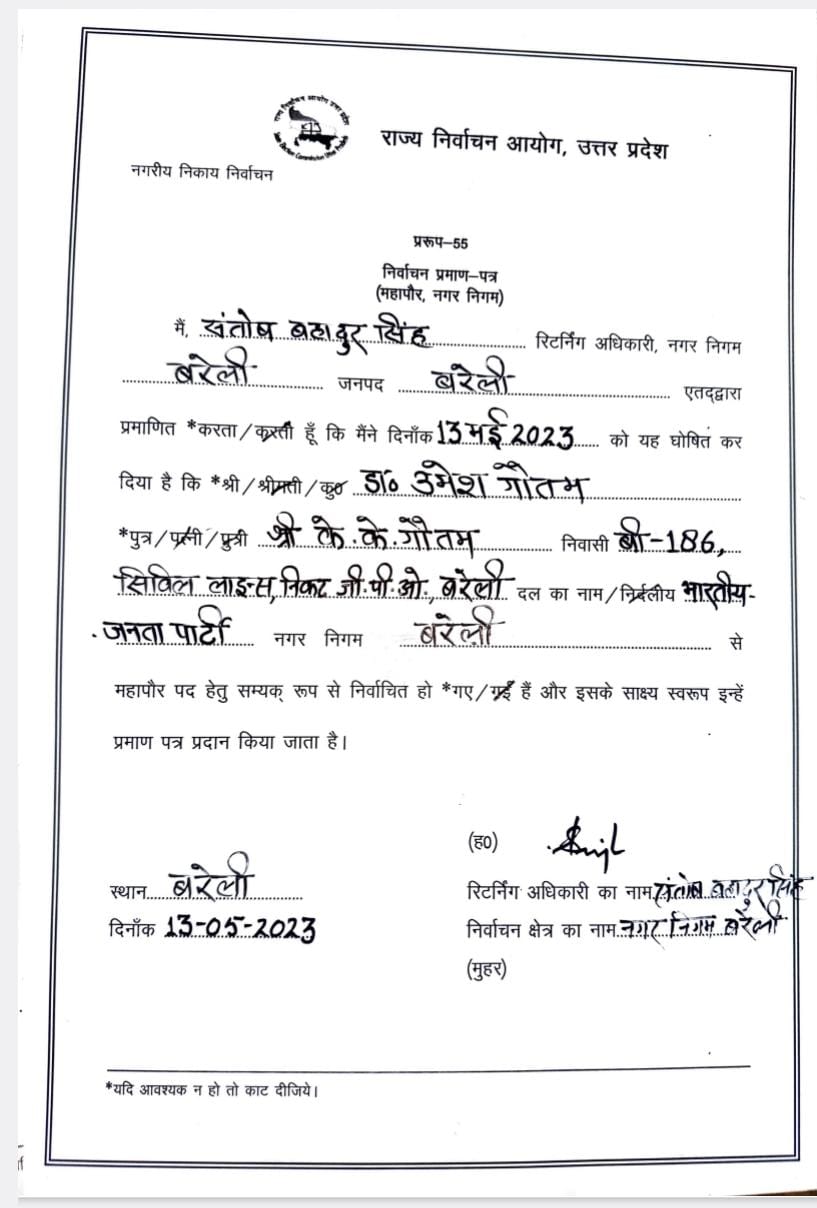 राज्य निर्वाचन आयोग, उत्तर प्रदेश
नगरीय निकाय निर्वाचन
प्ररूप-55
निर्वाचन प्रमाण-पत्र
(महापौर, नगर निगम)
मैं, संतोष बहादुर सिंह रिटर्निंग अधिकारी, नगर निगम
बरेली जनपद बरेली एतद्द्वारा
प्रमाणित *करता/करती हूँ कि मैंने दिनाँक 13 मई 2023 को यह घोषित कर
दिया है कि *श्री/श्रीमती/कु० डा० उमेश गौतम
*पुत्र/पत्नी/पुत्री श्री के.के.गौतम निवासी बी-186,
सिविल लाइन्स, निकट जी.पी.ओ., बरेली दल का नाम/निर्दलीय भारतीय-
जनता पार्टी नगर निगम बरेली से
महापौर पद हेतु सम्यक् रूप से निर्वाचित हो *गए/गई हैं और इसके साक्ष्य स्वरूप इन्हें
प्रमाण पत्र प्रदान किया जाता है।
(ह0)
स्थान बरेली रिटर्निंग अधिकारी का नाम संतोष बहादुर सिंह
दिनाँक 13-05-2023 निर्वाचन क्षेत्र का नाम नगर निगम बरेली
(मुहर)
*यदि आवश्यक न हो तो काट दीजिये।